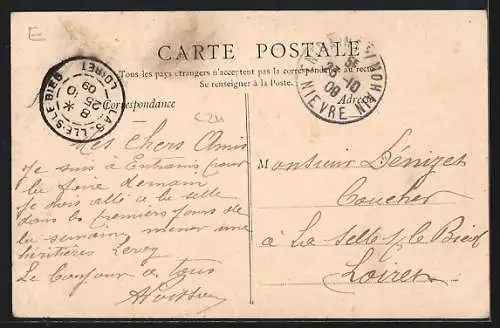 E
CARTE POSTALE
Tous les pays étrangers n'acceptent pas la correspondance au recto
Se renseigner à la Poste.
Correspondance
Adresse
LA SELLE-S-LE BIED
LOIRET
8 *
25
09
26-10
09
NIEVRE
Mes chers Amis
Je suis à Entrains pour
la foire demain
Je dois allé à la selle
dans les premiers jours de
la semaine mener une
héritières Leroy
Le bonjour a tous
Monsieur Dénizet
Coucher
à La Selle s/ le Bied
Loiret